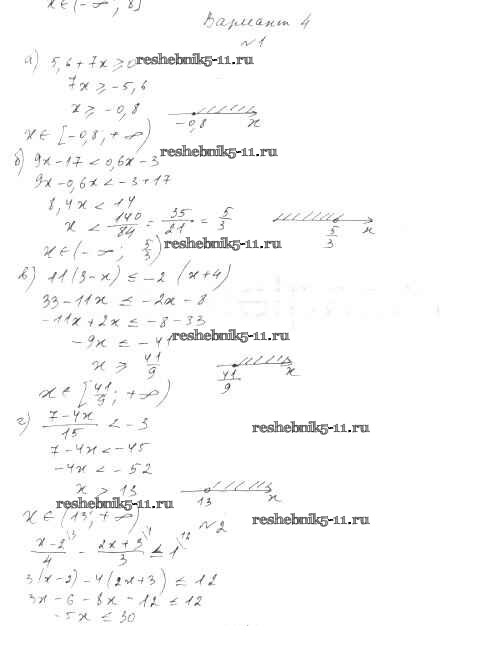 x ∈ (-∞; 8]
Вариант 4
№1
а) 5,6 + 7x ≥ 0 reshebnik5-11.ru
7x ≥ -5,6
x ≥ -0,8
-0,8 x
x ∈ [-0,8; +∞)
reshebnik5-11.ru
б) 9x - 17 < 0,6x - 3
9x - 0,6x < -3 + 17
8,4x < 14
x < 140/84 = 35/21 = 5/3
5/3 x
x ∈ (-∞; 5/3) reshebnik5-11.ru
в) 11(3 - x) ≤ -2(x + 4)
33 - 11x ≤ -2x - 8
-11x + 2x ≤ -8 - 33
reshebnik5-11.ru
-9x ≤ -41
x ≥ 41/9
41/9 x
x ∈ [41/9; +∞)
г) (7 - 4x)/15 < -3 reshebnik5-11.ru
7 - 4x < -45
-4x < -52
x > 13
13 x
reshebnik5-11.ru
x ∈ (13; +∞)
№2 reshebnik5-11.ru
(x - 2)/4 \3 - (2x + 3)/3 \4 ≤ 1 \12
3(x - 2) - 4(2x + 3) ≤ 12
3x - 6 - 8x - 12 ≤ 12
-5x ≤ 30